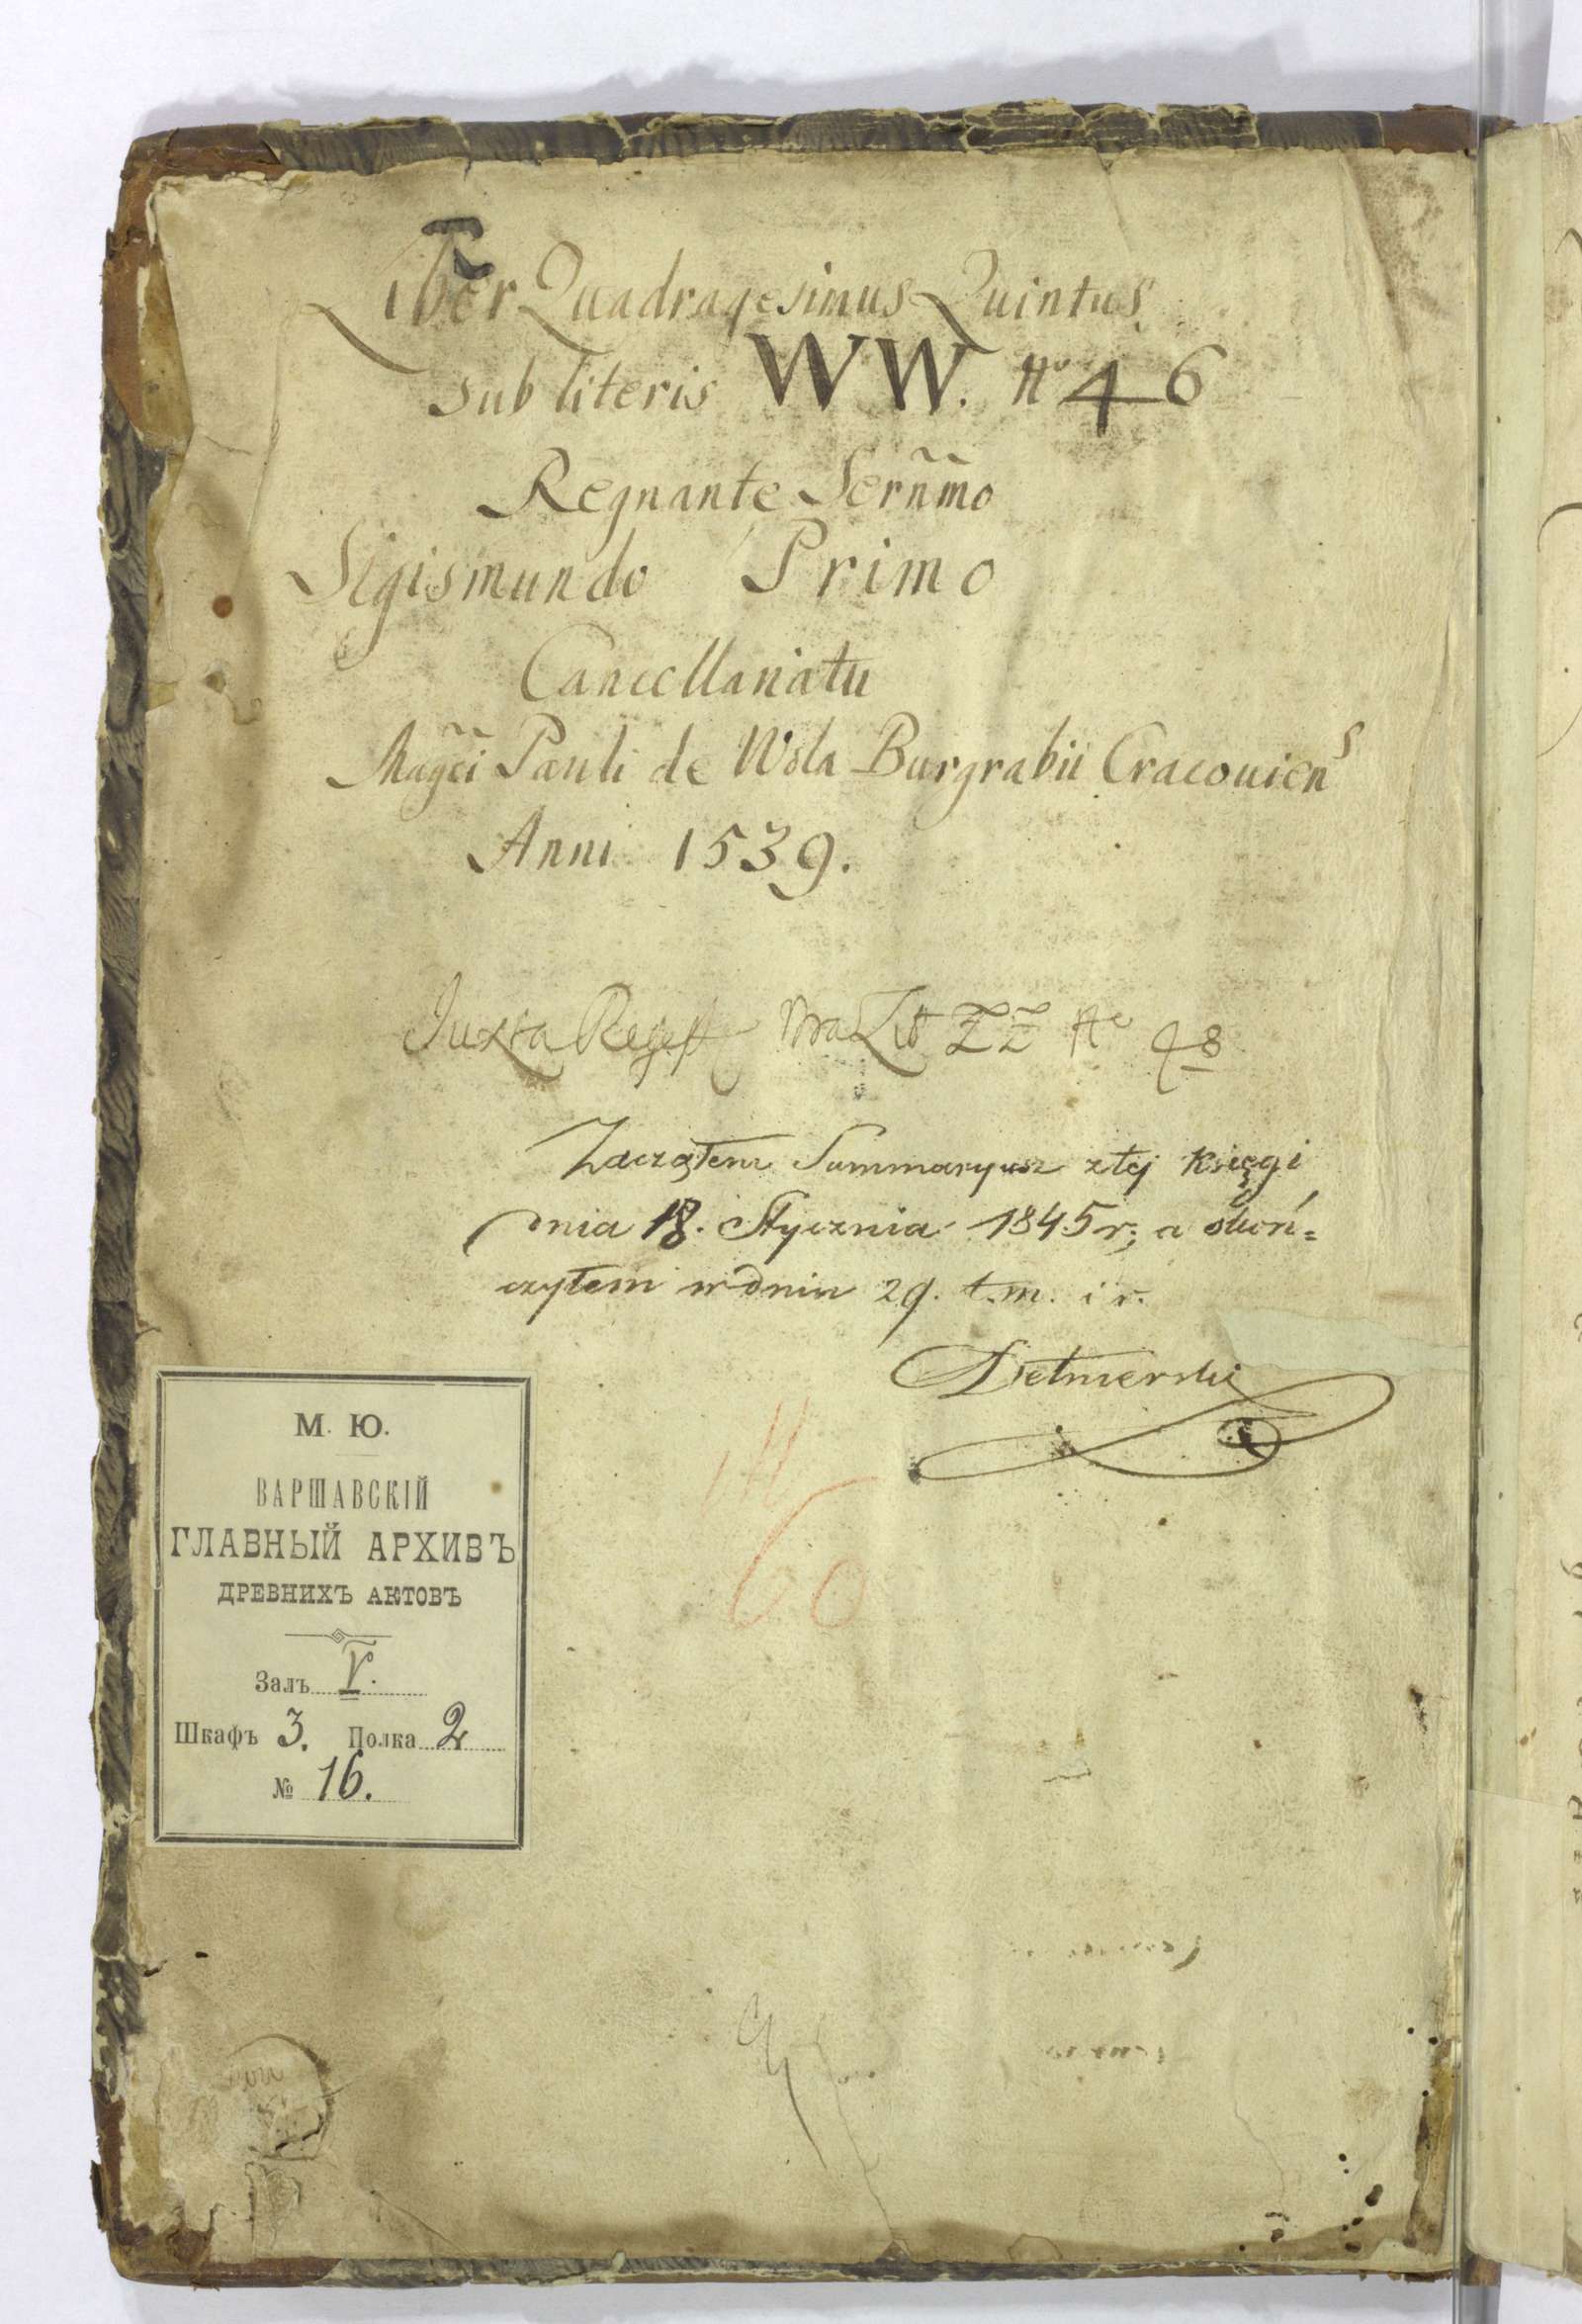 Liber Quadragesimus Quintus
sub literis WW. No 46
Regnante Serñm̃o
Sigismundo Primo
Cancellariatu
Mag̃c̃i Pauli de Wola Burgrabii Cracouiens
Anni 1539.
Juxta Regest Lit ZZ No 48
Zacząłem Summaryusz z tej księgi
dnia 18. Stycznia 1845 r; a skoń=
czyłem w dniu 29. t.m. i r.
M. Ю.
ВАРШАВСКІЙ
ГЛАВНЫЙ АРХИВЪ
ДРЕВНИХЪ АКТОВЪ
Залъ V.
Шкафъ 3. Полка 2
№ 16.